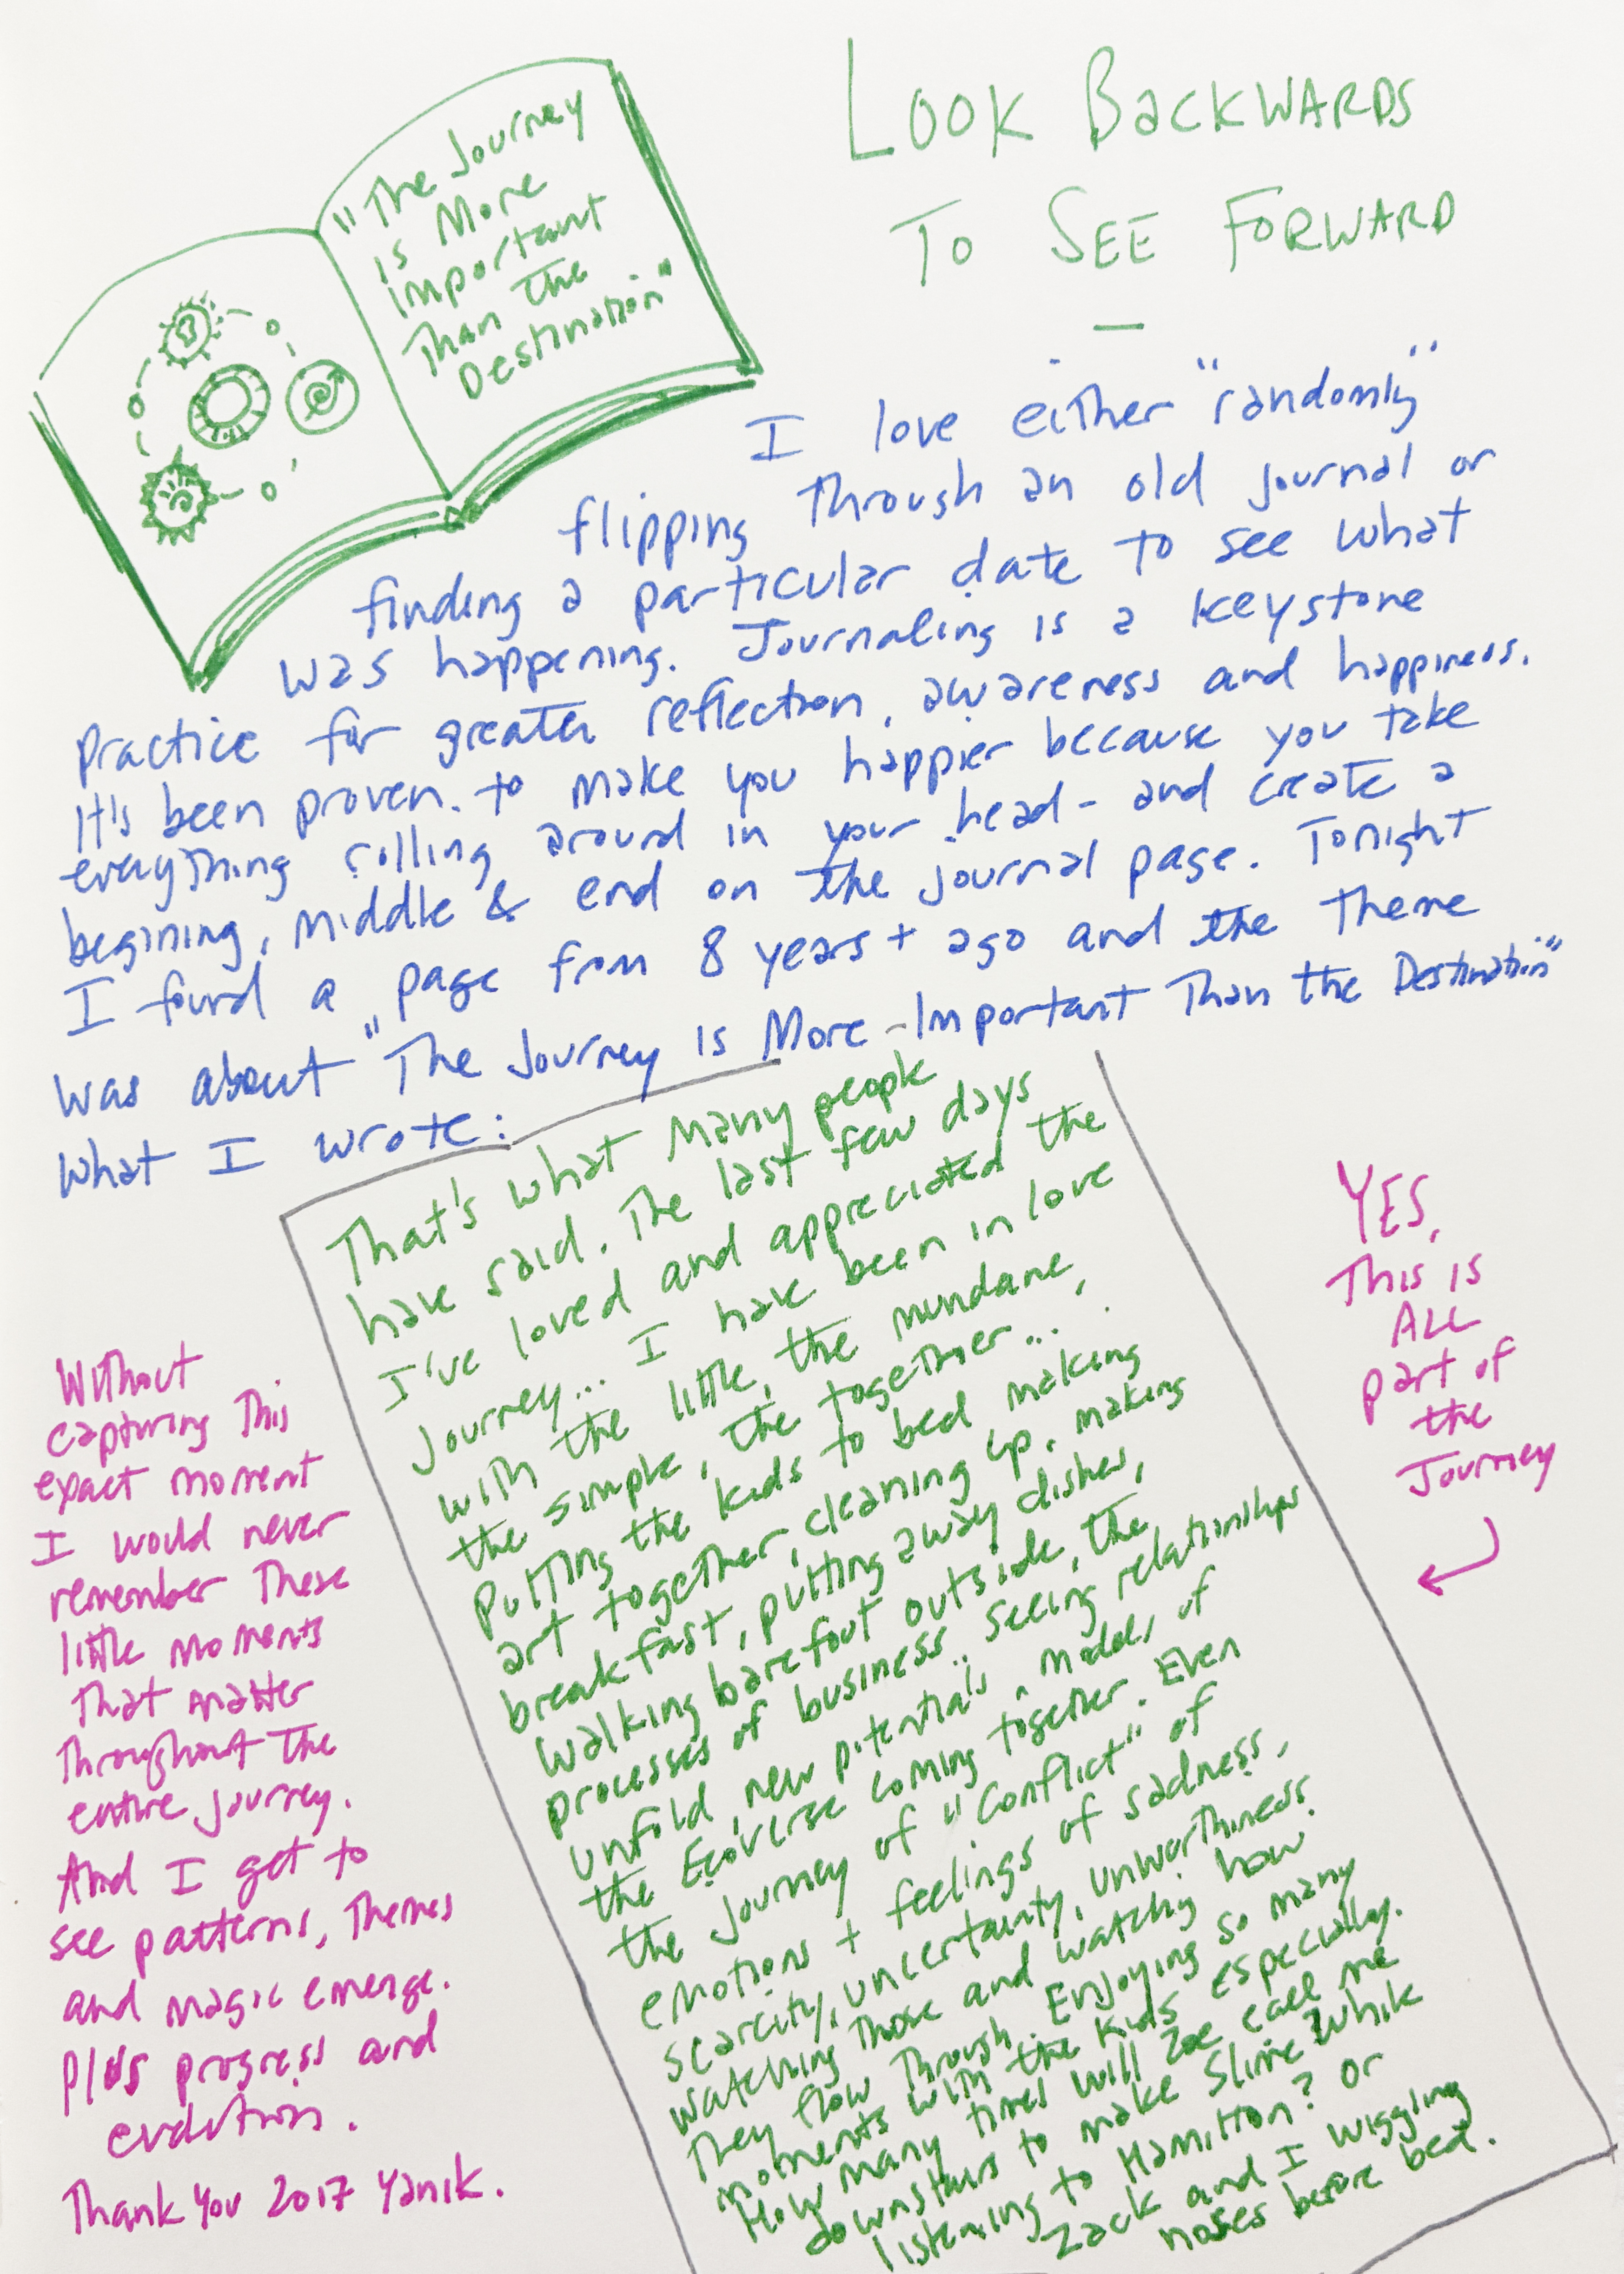 "The Journey
is More
important
Than the
Destination"
LOOK BACKWARDS
TO SEE FORWARD
—
I love either "randomly"
flipping through an old journal or
finding a particular date to see what
was happening. Journaling is a keystone
practice for greater reflection, awareness and happiness.
It's been proven to make you happier because you take
everything rolling around in your head - and create a
begining, middle & end on the journal page. Tonight
I found a page from 8 years + ago and the theme
was about "The Journey is More Important Than the Destination"
What I wrote:
That's what many people
have said. The last few days
I've loved and appreciated the
Journey... I have been in love
with the little, the mundane,
the simple, the together...
Putting the kids to bed making
art together, cleaning up, making
breakfast, putting away dishes,
walking barefoot outside, the
processes of business.. seeing relationships
unfold, new potentials, models of
the Ecoverse coming together. Even
the journey of "conflict" of
emotions + feelings of sadness,
scarcity, uncertainty, unworthiness
watching those and watching how
they flow through. Enjoying so many
moments with the kids especially.
How many times will Zoe call me
downstairs to make slime while
listening to Hamilton? or
Zack and I wiggling
noses before bed.
YES,
This is
ALL
part of
the
Journey
Without
capturing this
exact moment
I would never
remember these
little moments
that matter
throughout the
entire journey.
And I get to
see patterns, themes
and magic emerge.
Plus progress and
evolution.
Thank You 2017 Yanik.